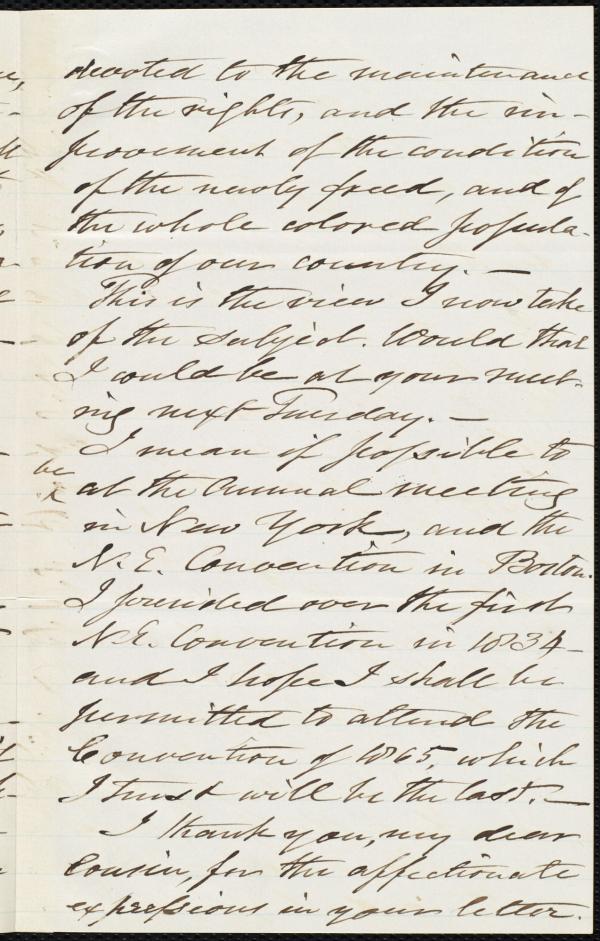 devoted to the maintenance
of the rights, and the im-
provement of the condition
of the newly freed, and of
the whole colored popula-
tion of our country. —
This is the view I now take
of the subject. Would that
I could be at your meet-
ing next Tuesday. —
I mean if possible to
be
at the Annual meeting
in New York, and the
N. E. Convention in Boston.
I presided over the first
N.E. Convention in 1834 -
and I hope I shall be
permitted to attend the
Convention of 1865, which
I trust will be the last. —
I thank you, my dear
Cousin, for the affectionate
expressions in your letter.